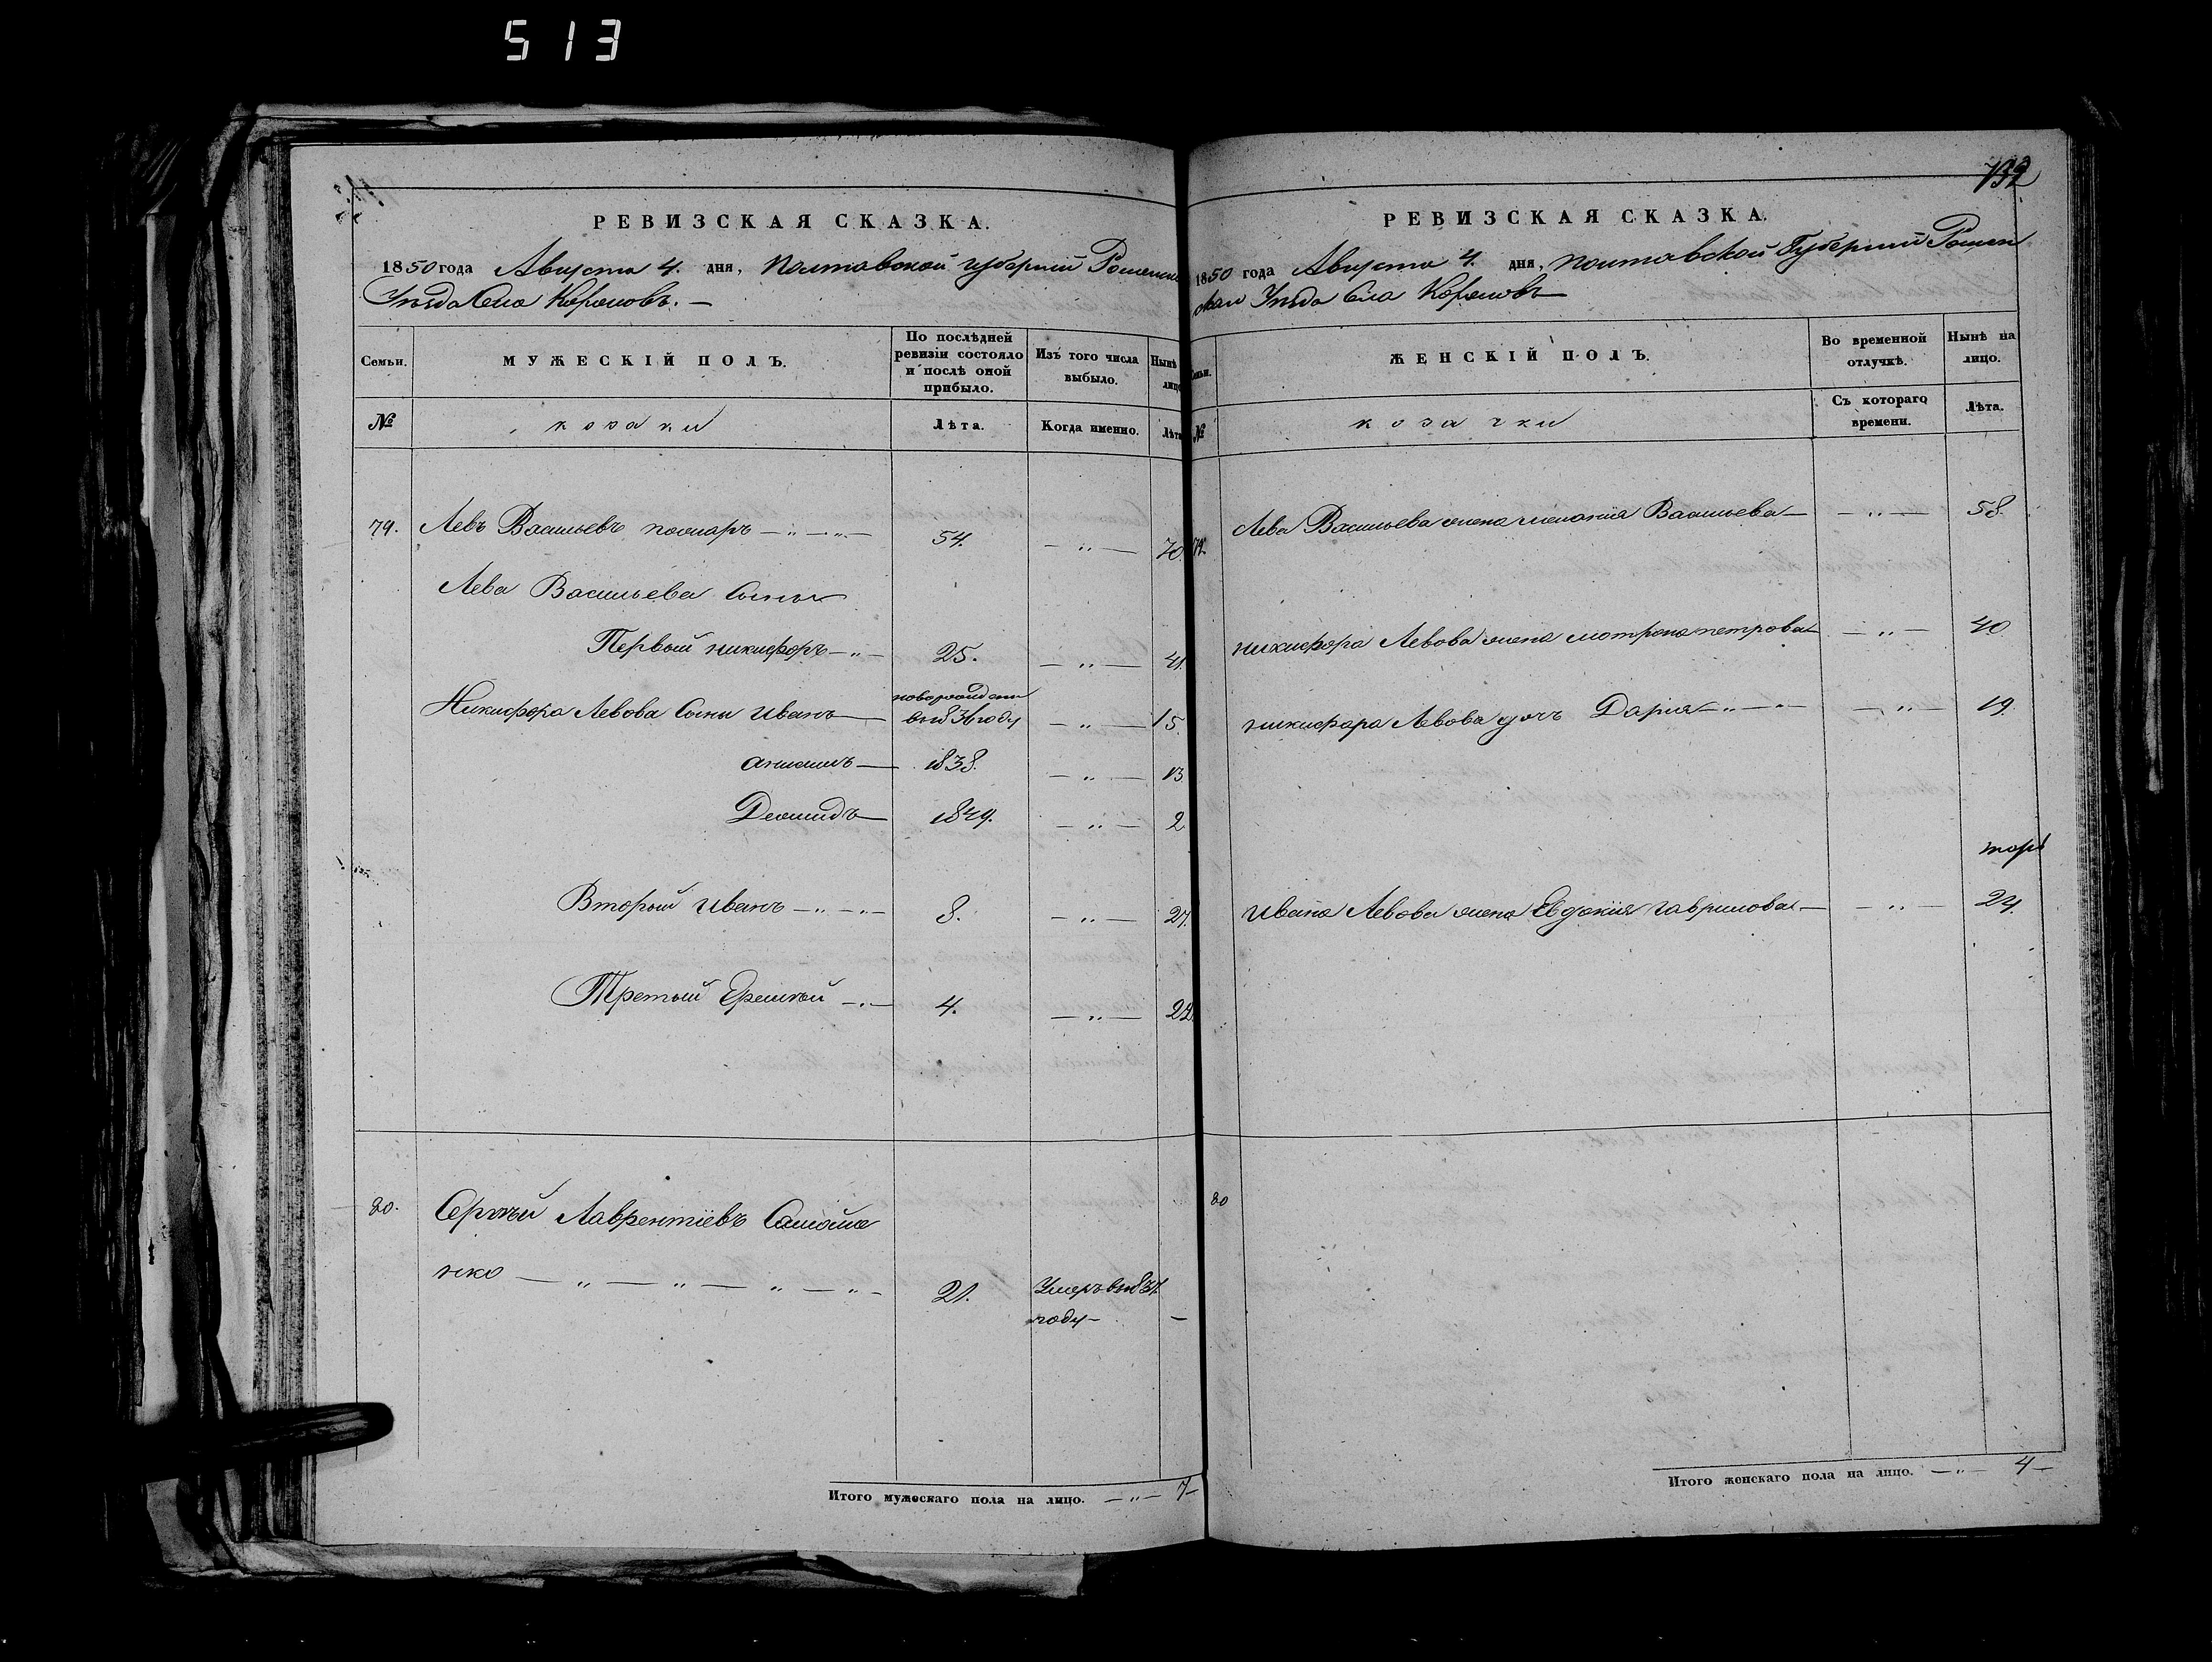 513
РЕВИЗСКАЯ СКАЗКА.
1850 года Августа 4. дня, Полтавской губерніи Роменска
Уезда Села Коровинъ.
Семьи.
МУЖЕСКІЙ ПОЛЪ.
По послѣдней ревизіи состояло и послѣ оной прибыло.
Изъ того числа выбыло.
Нынѣ лицо
№
козаки
Лѣта.
Когда именно.
Лѣта
79. Левъ Васильевъ —„—„— 54. —„— 70.
Лева Васильева Сыны
Первый никифоръ —„— 25. —„— 41.
Никифора Левова Сыны Иванъ — новорожден
в 1836 году —„— 15.
— 1838. —„— 13
Деомидъ — 1849. —„— 2
Вторый Иванъ —„—„— 8. —„— 24.
Третый —„— 4. —„— 22
80. Сергѣй Лаврентіевъ Самойле
нко —„—„—„—„— 21. Умеръ в 1837.
году — —
Итого мужескаго пола на лицо. —„— 7—
732
РЕВИЗСКАЯ СКАЗКА.
1850 года Августа 4. дня, Полтавской Губерніи Ромен
скаго Уезда Села Коровинъ —
Семьи.
ЖЕНСКІЙ ПОЛЪ.
Во временной отлучкѣ.
Нынѣ на лицо.
№
козачки
Съ котораго времени.
Лѣта.
79. Лева Васильева жена меланія Васильева — —„— 58.
никифора Левова жена мотрона петрова —„— 40
никифора Левова дочь Дарія —„—„— —„— 19.
Ивана Левова жена Евдокія гаврилова — —„— 24.
80
Итого женскаго пола на лицо. —„— 4—